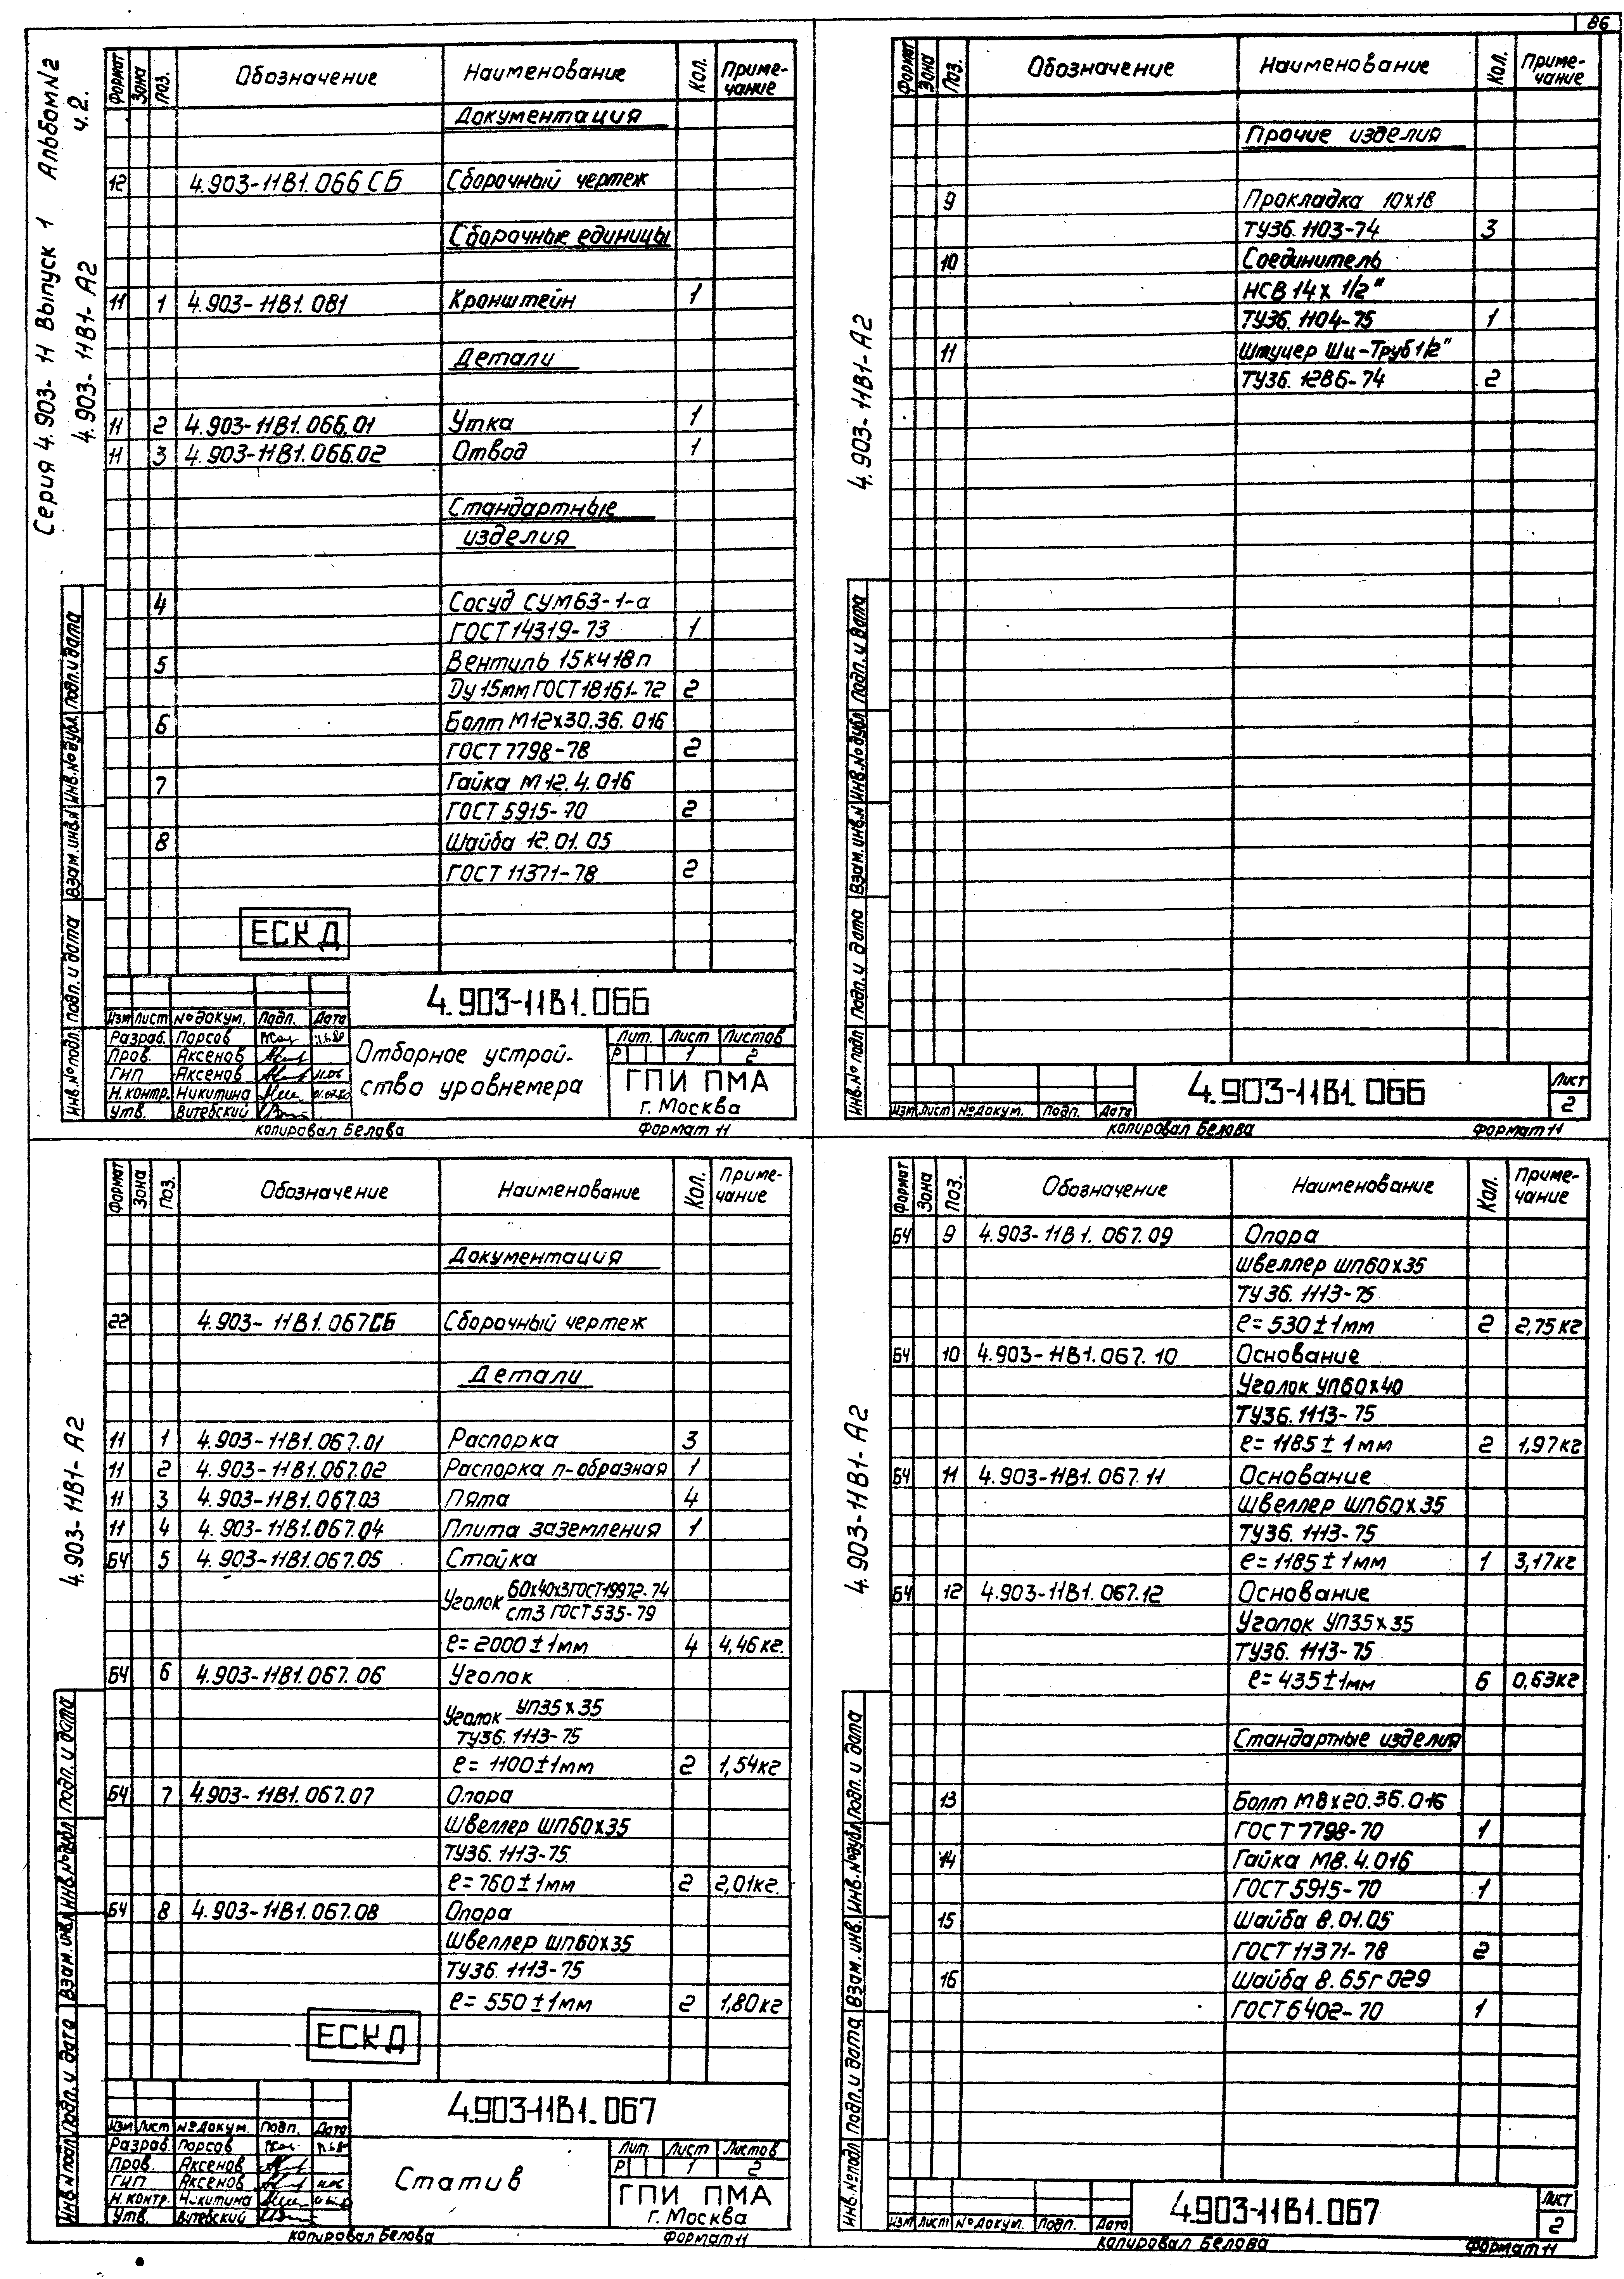 86
Серия 4.903-11 Выпуск 1 Альбом №2
4.903-11В1-А2 ч.2.
Формат Зона Поз. Обозначение Наименование Кол. Примечание
Документация
12 4.903-11В1.066СБ Сборочный чертеж
Сборочные единицы
11 1 4.903-11В1.081 Кронштейн 1
Детали
11 2 4.903-11В1.066.01 Утка 1
11 3 4.903-11В1.066.02 Отвод 1
Стандартные
изделия
4 Сосуд СУМ63-1-а
ГОСТ 14319-73 1
5 Вентиль 15кч18п
Dу 15мм ГОСТ 18161-72 2
6 Болт М12х30.36.016
ГОСТ 7798-78 2
7 Гайка М12.4.016
ГОСТ 5915-70 2
8 Шайба 12.01.05
ГОСТ 11371-78 2
ЕСКД
Инв.№подл. Подп. и дата Взам.инв.№ Инв.№дубл. Подп. и дата
4.903-11В1.066
Изм Лист № докум. Подп. Дата
Разраб. Порсов
Пров. Аксенов
ГИП Аксенов
Н.контр. Никитина
Утв. Витебский
Отборное устрой-
ство уровнемера
Лит. Лист Листов
Р 1 2
ГПИ ПМА
г. Москва
Копировал Белова Формат 11
4.903-11В1-А2
Формат Зона Поз. Обозначение Наименование Кол. Примечание
Прочие изделия
9 Прокладка 10х18
ТУ36.1103-74 3
10 Соединитель
НСВ 14х 1/2"
ТУ36.1104-75 1
11 Штуцер Шц-Труб 1/2"
ТУ36.1286-74 2
Инв.№подл Подп. и дата Взам.инв.№ Инв.№дубл Подп. и дата
Изм Лист № докум. Подп. Дата
4.903-11В1.066
Лист
2
Копировал Белова Формат 11
4.903-11В1-А2
Формат Зона Поз. Обозначение Наименование Кол. Примечание
Документация
22 4.903-11В1.067СБ Сборочный чертеж
Детали
11 1 4.903-11В1.067.01 Распорка 3
11 2 4.903-11В1.067.02 Распорка п-образная 1
11 3 4.903-11В1.067.03 Пята 4
11 4 4.903-11В1.067.04 Плита заземления 1
БЧ 5 4.903-11В1.067.05 Стойка
Уголок 60х40х3 ГОСТ 19972-74
ст3 ГОСТ 535-79
ℓ=2000±1мм 4 4,46кг.
БЧ 6 4.903-11В1.067.06 Уголок
Уголок УП35х35
ТУ36.1113-75
ℓ=1100±1мм 2 1,54кг
БЧ 7 4.903-11В1.067.07 Опора
Швеллер ШП60х35
ТУ36.1113-75
ℓ=760±1мм 2 2,01кг.
БЧ 8 4.903-11В1.067.08 Опора
Швеллер ШП60х35
ТУ36.1113-75
ℓ=550±1мм 2 1,80кг
ЕСКД
Инв.№подл Подп. и дата Взам.инв.№ Инв.№дубл Подп. и дата
4.903-11В1.067
Изм Лист № докум. Подп. Дата
Разраб. Порсов
Пров. Аксенов
ГИП Аксенов
Н.контр. Никитина
Утв. Витебский
Статив
Лит. Лист Листов
Р 1 2
ГПИ ПМА
г. Москва
Копировал Белова Формат 11
4.903-11В1-А2
Формат Зона Поз. Обозначение Наименование Кол. Примечание
БЧ 9 4.903-11В1.067.09 Опора
Швеллер ШП60х35
ТУ36.1113-75
ℓ=530±1мм 2 2,75кг
БЧ 10 4.903-11В1.067.10 Основание
Уголок УП60х40
ТУ36.1113-75
ℓ=1185±1мм 2 1,97кг
БЧ 11 4.903-11В1.067.11 Основание
Швеллер ШП60х35
ТУ36.1113-75
ℓ=1185±1мм 1 3,17кг
БЧ 12 4.903-11В1.067.12 Основание
Уголок УП35х35
ТУ36.1113-75
ℓ=435±1мм 6 0,63кг
Стандартные изделия
13 Болт М8х20.36.016
ГОСТ 7798-70 1
14 Гайка М8.4.016
ГОСТ 5915-70 1
15 Шайба 8.01.05
ГОСТ 11371-78 2
16 Шайба 8.65г 029
ГОСТ 6402-70 1
Инв.№подл Подп. и дата Взам.инв. Инв.№дубл Подп. и дата
Изм Лист № докум. Подп. Дата
4.903-11В1.067
Лист
2
Копировал Белова Формат 11